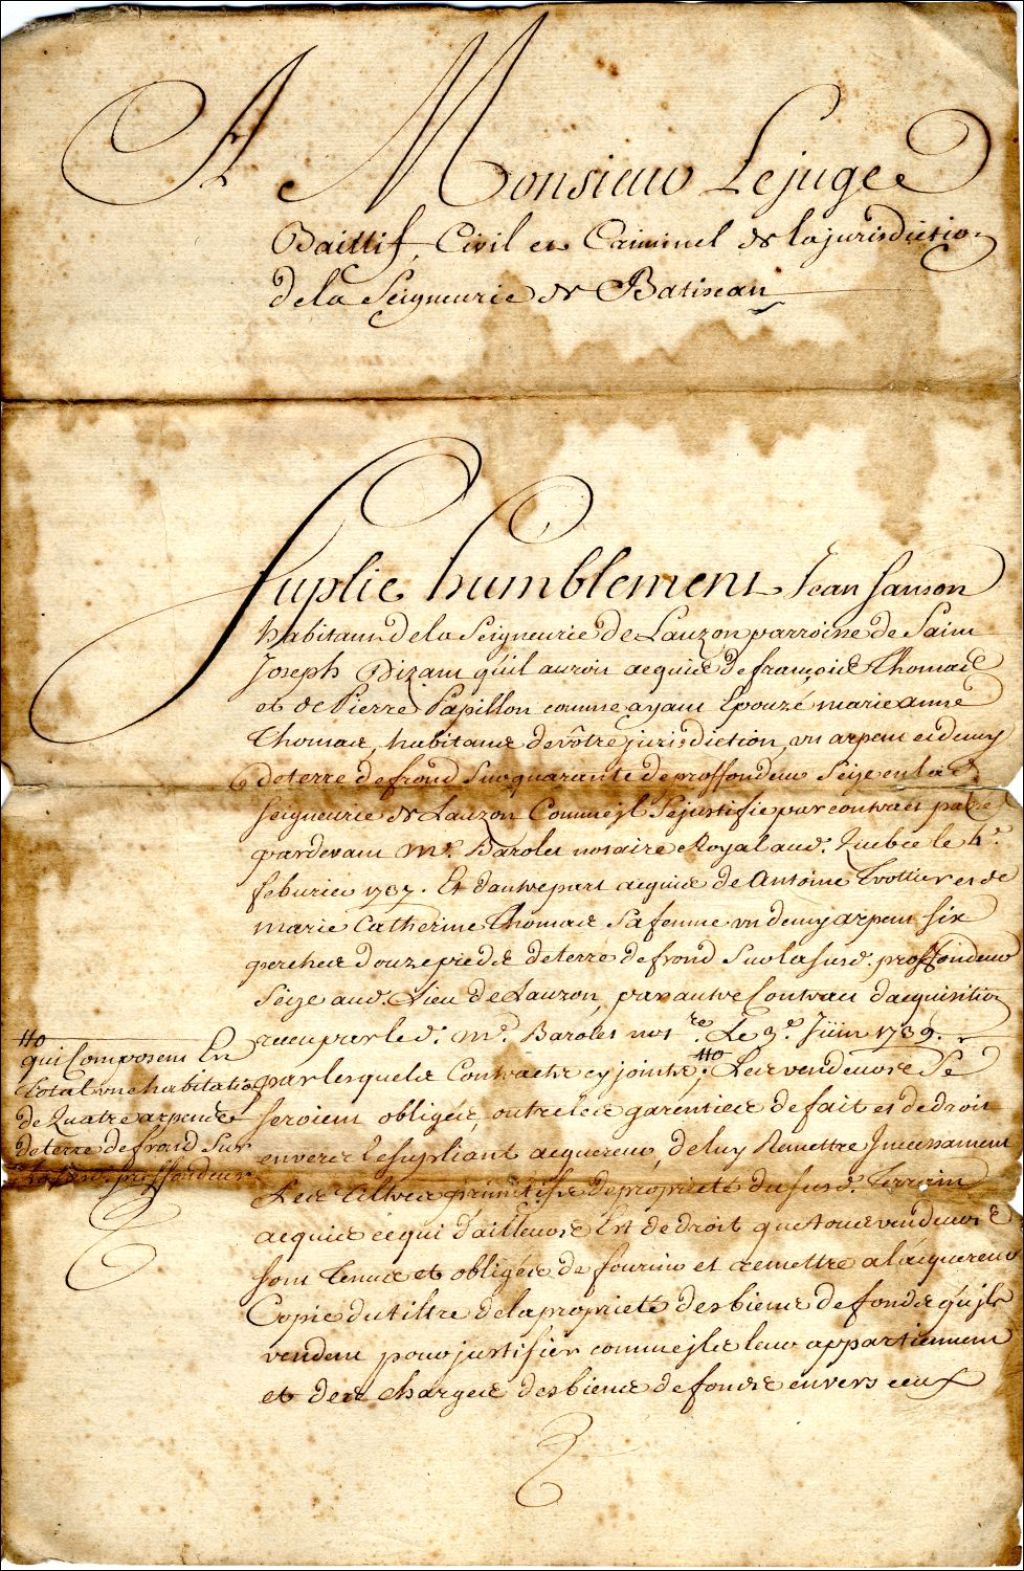 A Monsieur Lejuge
Baillif, Civil et Criminel de la jurisdiction
de la Seigneurie de Batiscan
Suplie humblement Jean Sanson
habitant de la Seigneurie de Lauzon parroisse de Saint
Joseph Dizant qu'il auroit acquis de françois Thomas
et de Pierre Papillon comme ayant Epouzé marie anne
Thomas, habitans de vôtre jurisdiction, un arpent et demy
de terre de frond sur quarante de proffondeur Sçize en lad.
Seigneurie de Lauzon Comme jl Se justifie par contract passé
pardevant Me. Barolet notaire Royal aud. Quebec le 4e.
feburier 1737. Et d'autre part acquis de Antoine Trottier et de
marie Catherine Thomas Sa femme un demy arpent six
perches douze pieds de terre de frond Sur la susd. proffondeur
Sçize aud. Lieu de Lauzon, par autre Contract d'acquisition
recu par led. Me. Barolet notre. Le 9e. Juin 1739.
par lesquels Contracts cy joints, Les vendeurs Se
seroient obligés, outre les garenties de fait et de droit
envers le supliant acquereur, de luy Remettre Jncessament
Les tiltres primitifs de proprieté du susd. Terrain
acquis ce qui d'ailleurs Est de droit que tous vendeurs
sont Tenus et obligés de fournir et remettre a l'acquereur
Copie du tiltre de la proprieté des biens de fonds qu'jls
vendent pour justifier comme jls leur appartiennent
et des charges des biens de fonds envers ceux
qui Composent En
Total une habitation
de Quatre arpents
de terre de frond Sur
la susd. proffondeur